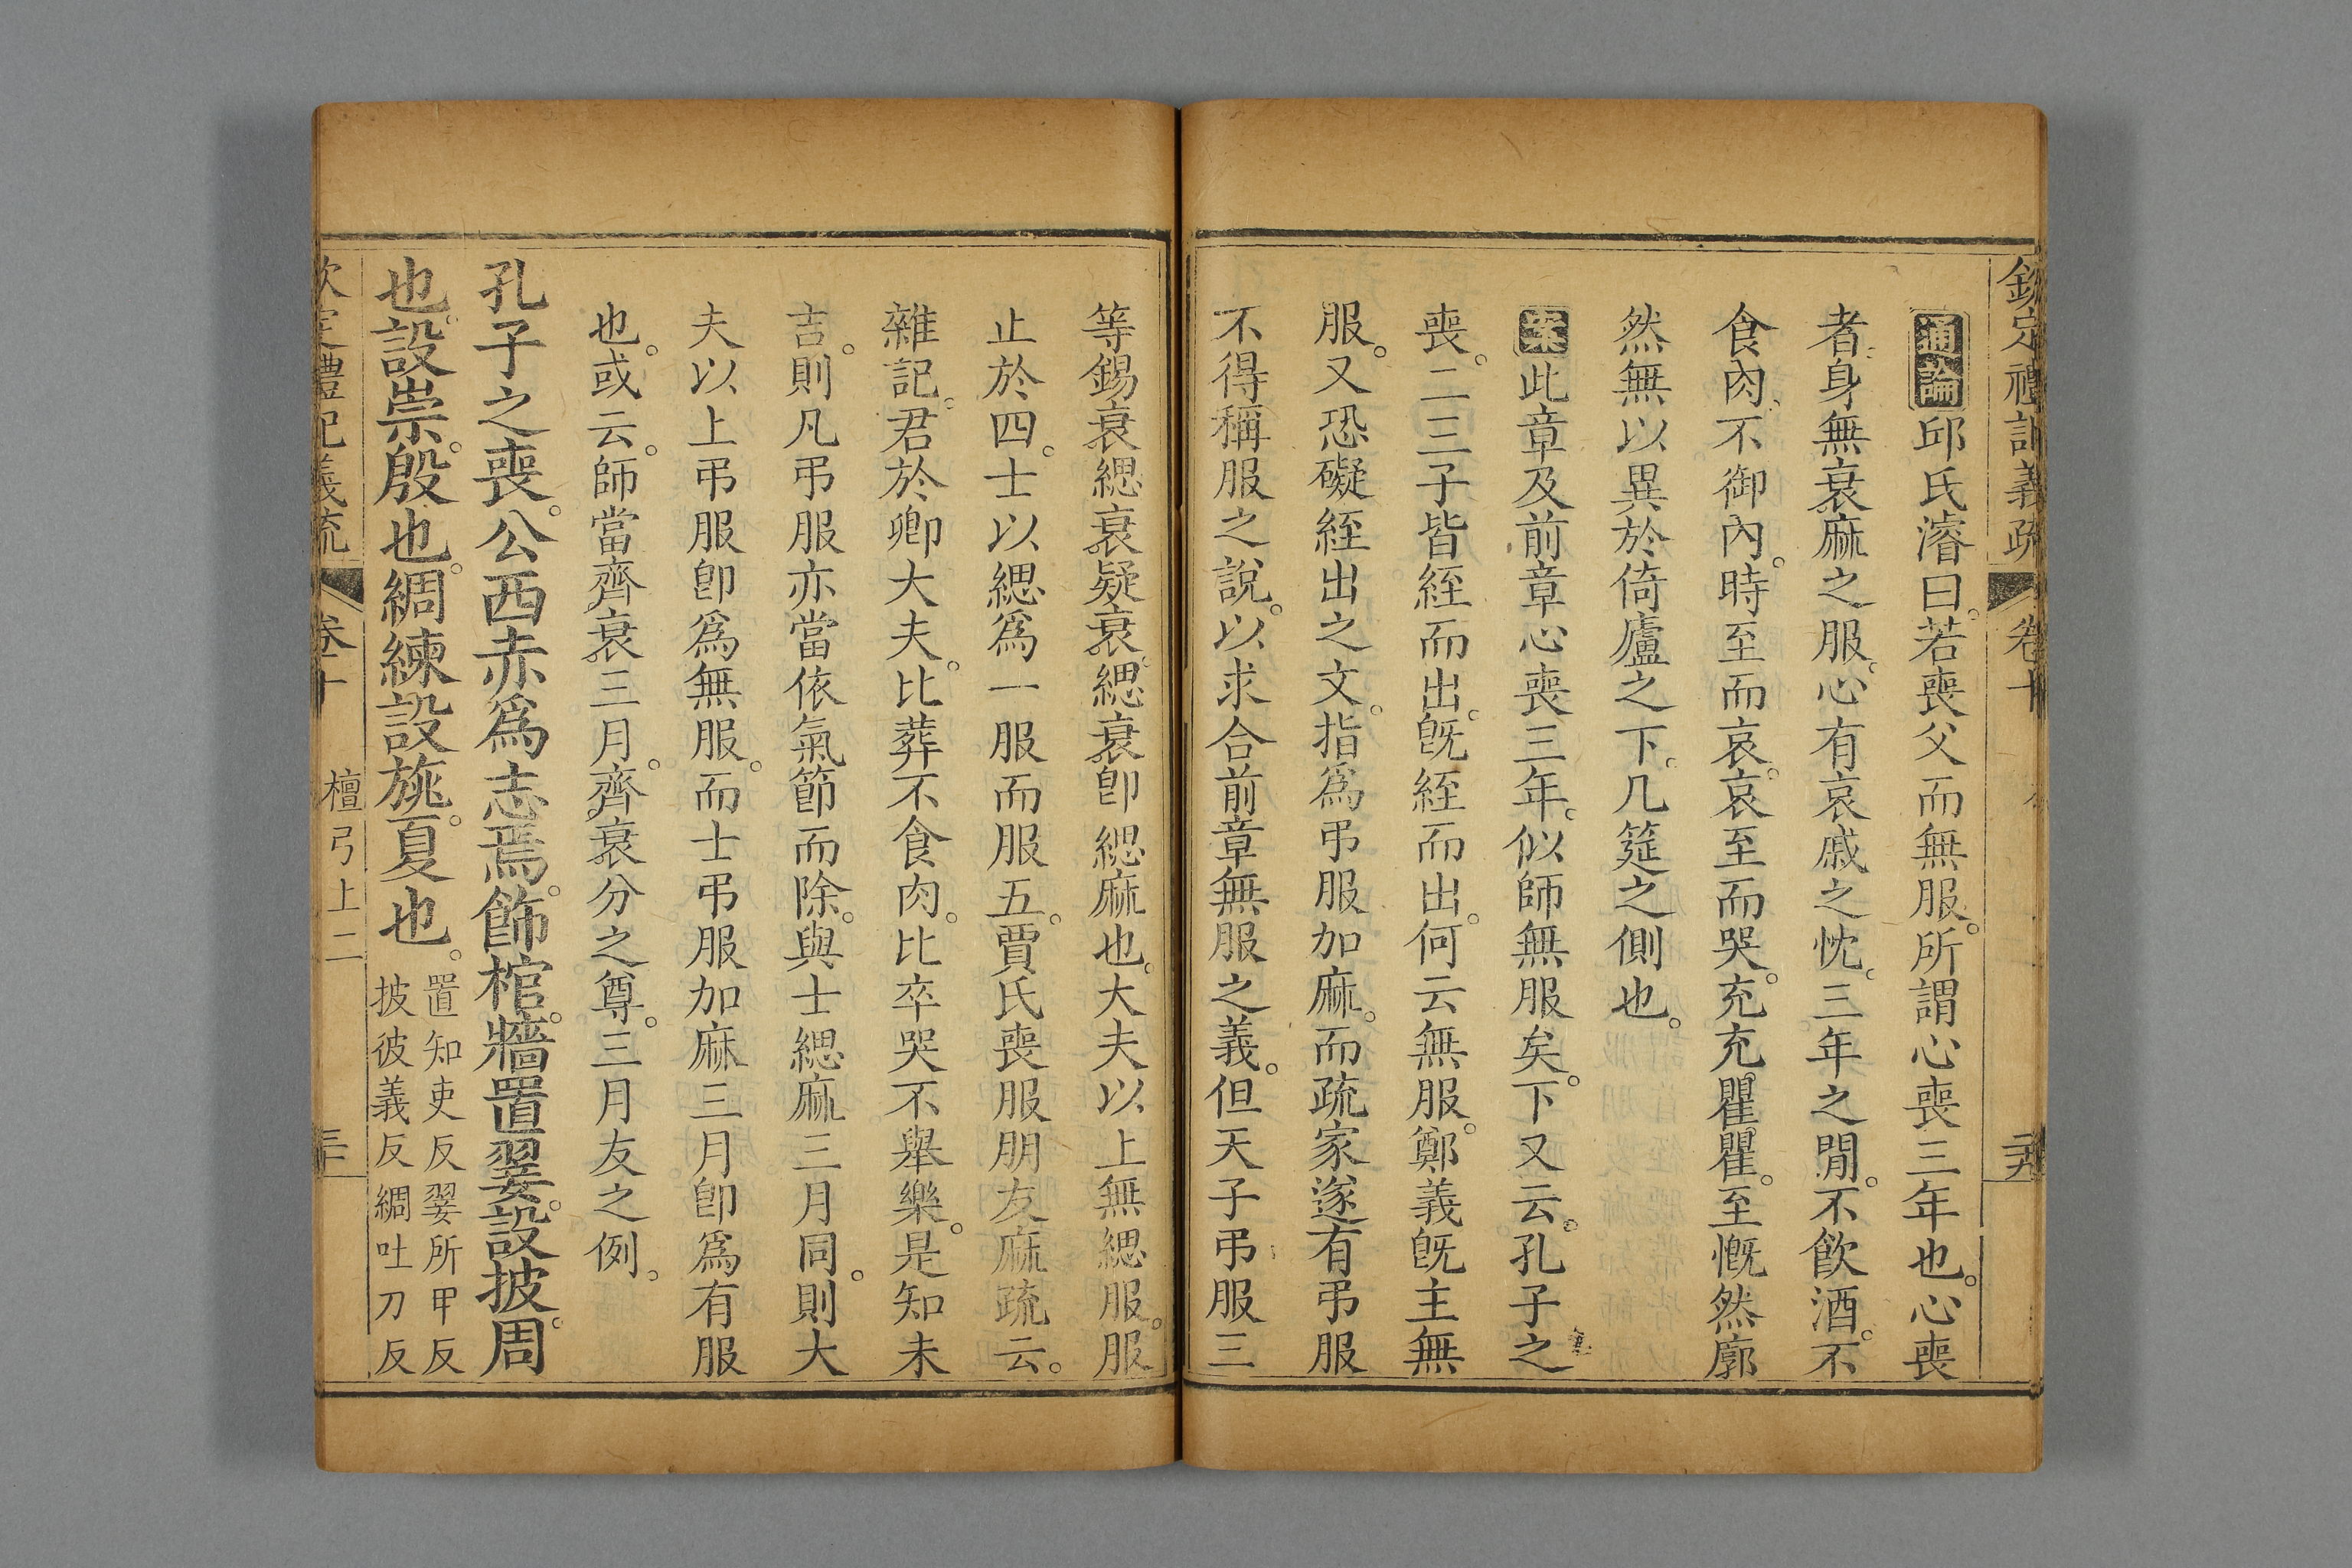 欽定禮記義疏 卷十
通論邱氏濬曰。若喪父而無服。所謂心喪三年也。心喪
者、身無衰麻之服。心有哀戚之忱。三年之閒。不飮酒。不
食肉、不御內。時至而哀。哀至而哭。充充瞿瞿。至慨然廓
然無以異於倚廬之下。几筵之側也。
案此章及前章心喪三年。似師無服矣。下又云。孔子之
喪。二三子皆絰而出。旣絰而出。何云無服。鄭義旣主無
服。又恐礙絰出之文。指爲弔服加麻。而疏家遂有弔服
不得稱服之說。以求合前章無服之義。但天子弔服三
等錫衰緦衰疑衰。緦衰卽緦麻也。大夫以上無緦服。服
止於四。士以緦爲一服而服五。賈氏喪服朋友麻疏云。
雜記。君於卿大夫。比葬不食肉。比卒哭不舉樂。是知未
吉。則凡弔服亦當依氣節而除。與士緦麻三月同。則大
夫以上弔服卽爲無服。而士弔服加麻三月卽爲有服
也。或云。師當齊衰三月。齊衰分之尊。三月友之例。
孔子之喪。公西赤爲志焉。飾棺。牆置翣。設披。周
也。設崇。殷也。綢練設旐。夏也。置知吏反翣所甲反
披彼義反綢吐刀反
禮記義疏 卷十 檀弓上二